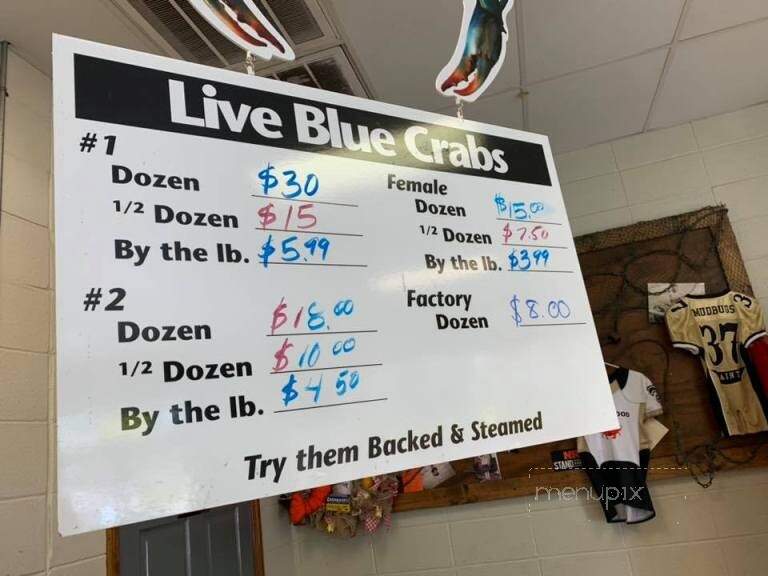 Live Blue Crabs
#1
Dozen $30
1/2 Dozen $15
By the lb. $5.99
#2
Dozen $18.00
1/2 Dozen $10 00
By the lb. $4 50
Female
Dozen $15.00
1/2 Dozen $7.50
By the lb. $3 99
Factory
Dozen $8.00
Try them Backed & Steamed
MUDBUGS
37
STAND
menupix